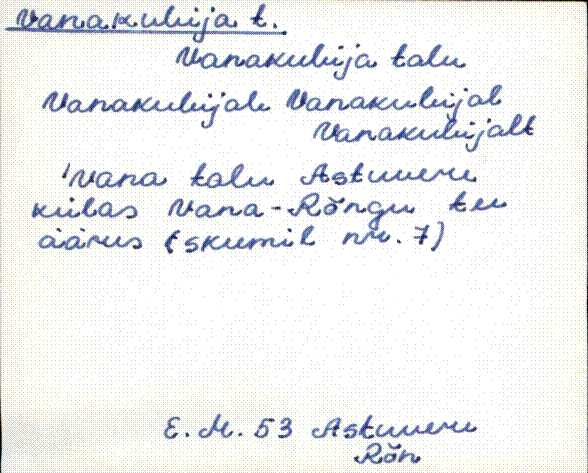 Vanakubija t.
Vanakubija talu
Vanakubijale Vanakubijal
Vanakubijalt
'Vana talu Astuvere
külas Vana-Rõngu tee
ääres (skeemil nr. 7)
E. M. 53 Astuvere
Rõn